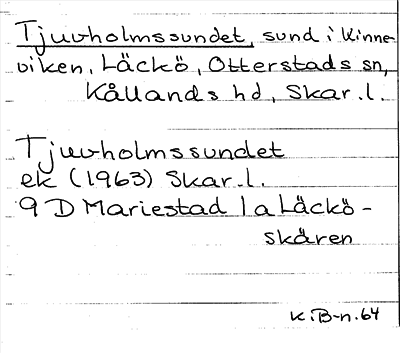 Tjuvholmssundet, sund i Kinne-
viken, Läckö, Otterstads sn,
Kållands hd, Skar.l.
Tjuvholmssundet
ek (1963) Skar.l.
9 D Mariestad 1a Läckö-
skären
K.B-n.64